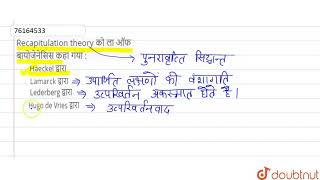 76164533
Recapitulation theory को ला ऑफ
बायोजेनेसिस कहा गया :
पुनरावृत्ति सिद्धान्त
Haeckel द्वारा
Lamarck द्वारा ⇒ उपार्जित लक्षणों की वंशागति
Lederberg द्वारा ⇒ उत्परिवर्तन अकस्मात होते है।
Hugo de Vries द्वारा ⇒ उत्परिवर्तनवाद
doubtnut